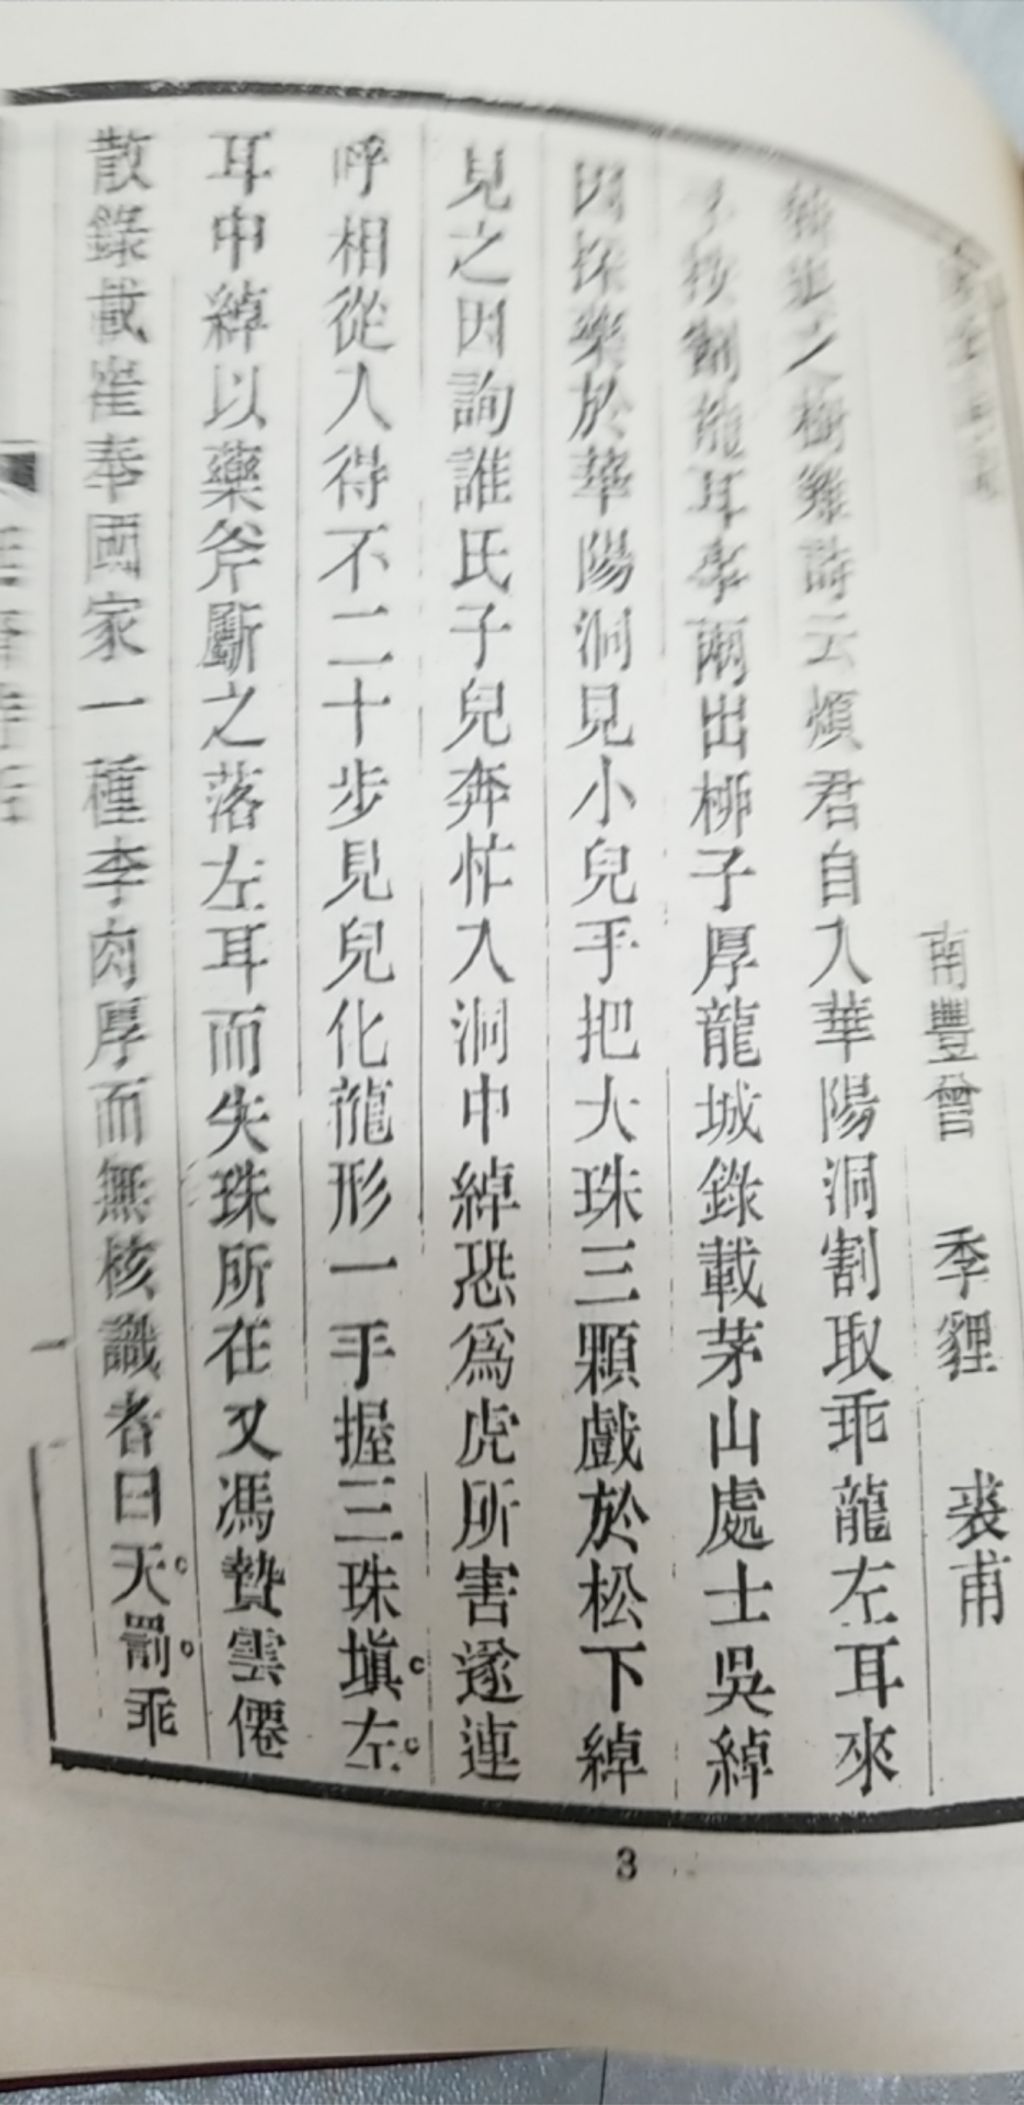 南豐曾 季貍 裘甫
之樹雞詩云煩君自入華陽洞割取乖龍左耳來
子按割龍耳事兩出柳子厚龍城錄載茅山處士吳綽
因採藥於華陽洞見小兒手把大珠三顆戲於松下綽
見之因詢誰氏子兒奔忙入洞中綽恐爲虎所害遂連
呼相從入得不二十步見兒化龍形一手握三珠塡左
耳中綽以藥斧斸之落左耳而失珠所在又馮贄雲僊
散錄載崔奉國家一種李肉厚而無核識者曰天罰乖
3